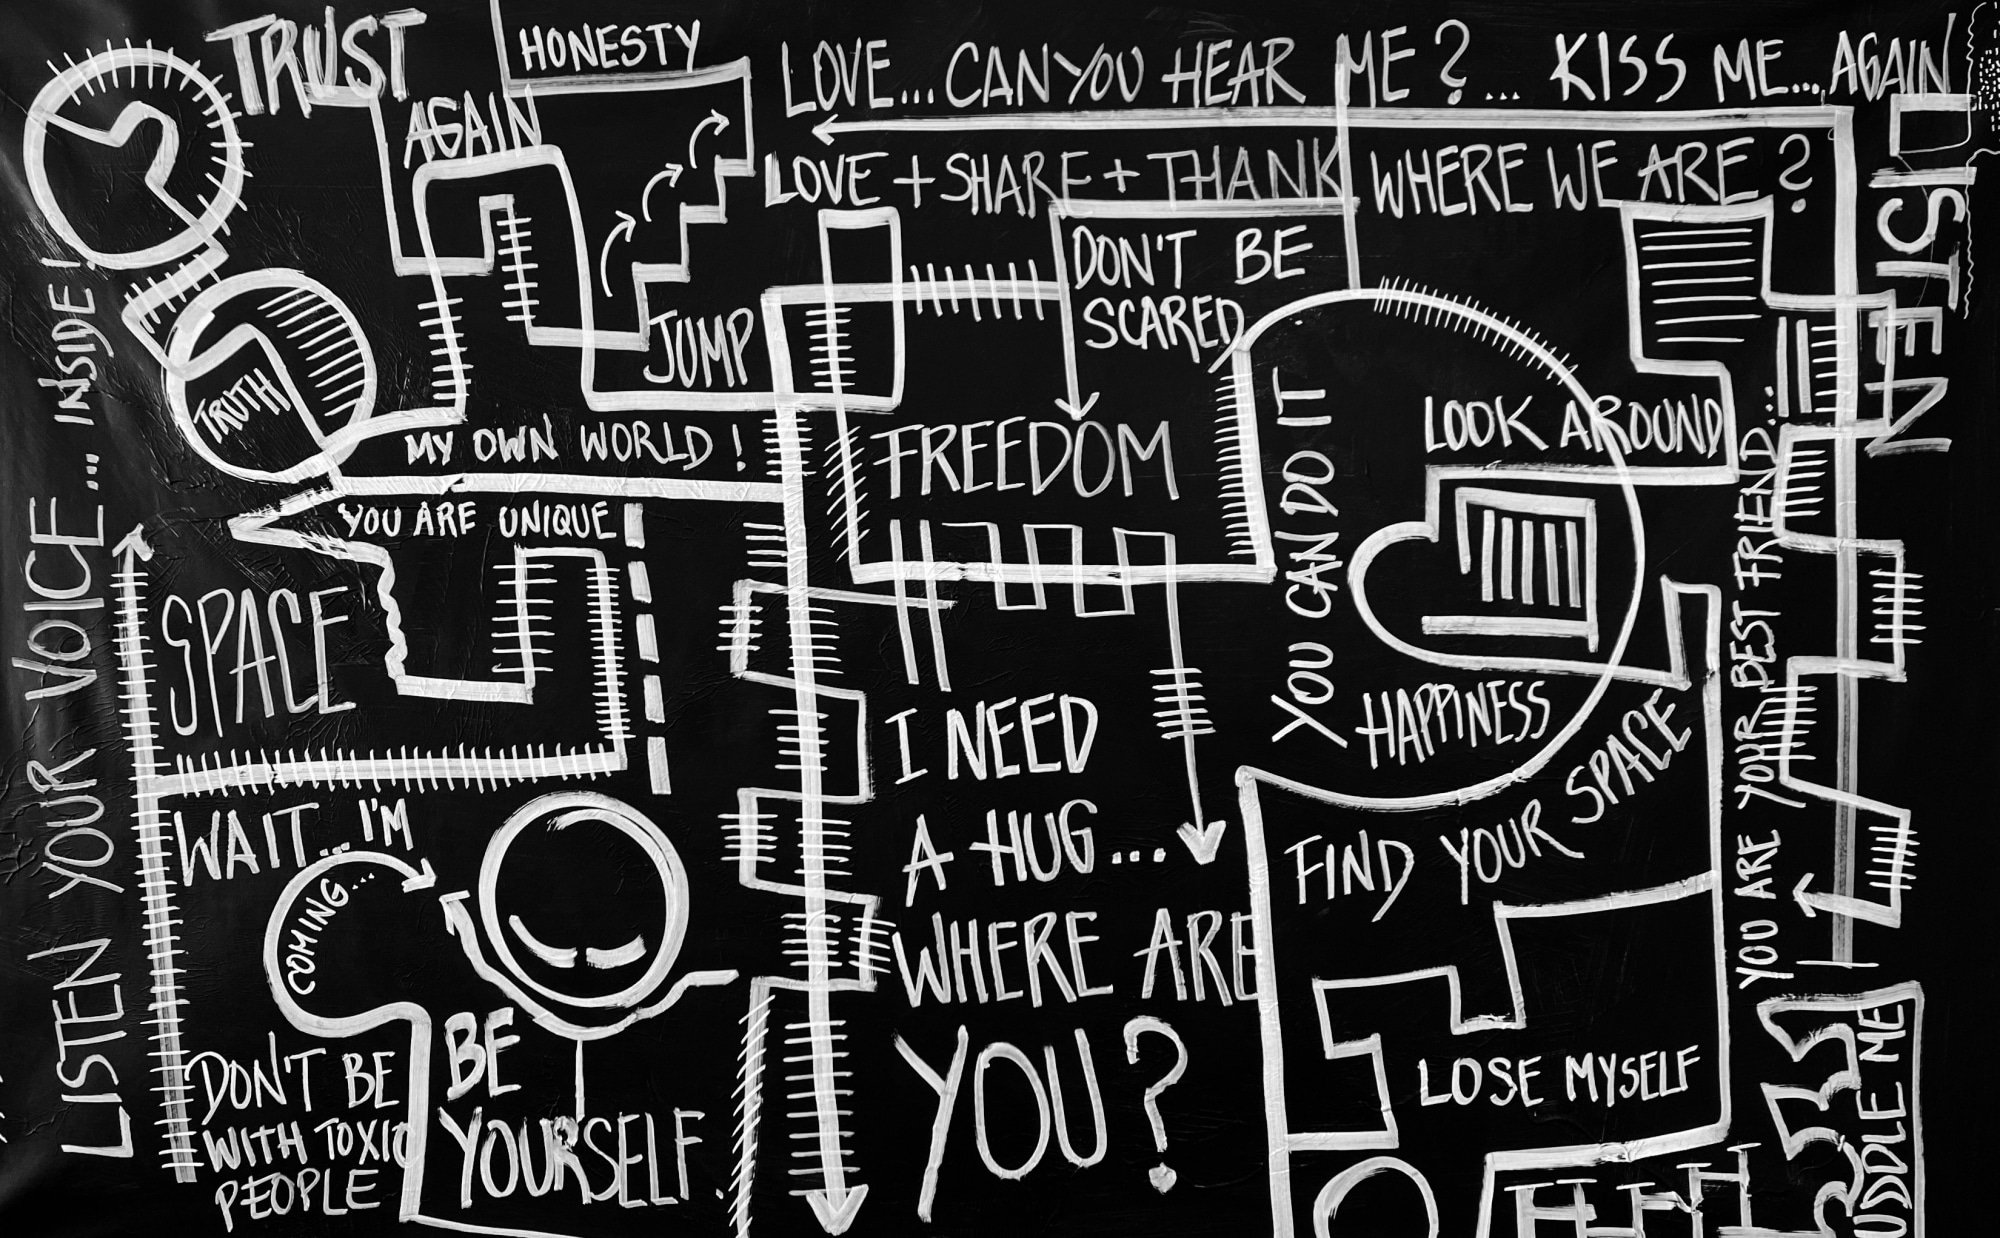 TRUST
HONESTY
AGAIN
LOVE...CAN YOU HEAR ME?... KISS ME...AGAIN
LOVE + SHARE + THANK
WHERE WE ARE?
LISTEN
DON'T BE
SCARED
JUMP
TRUTH
MY OWN WORLD!
YOU ARE UNIQUE
FREEDOM
YOU CAN DO IT
LOOK AROUND
HAPPINESS
SPACE
LISTEN YOUR VOICE... INSIDE!
WAIT... I'M
COMING...
I NEED
A HUG...
WHERE ARE
YOU?
FIND YOUR SPACE
YOU ARE YOUR BEST FRIEND...
LOSE MYSELF
DON'T BE
WITH TOXIC
PEOPLE
BE
YOURSELF.
UDDLE ME